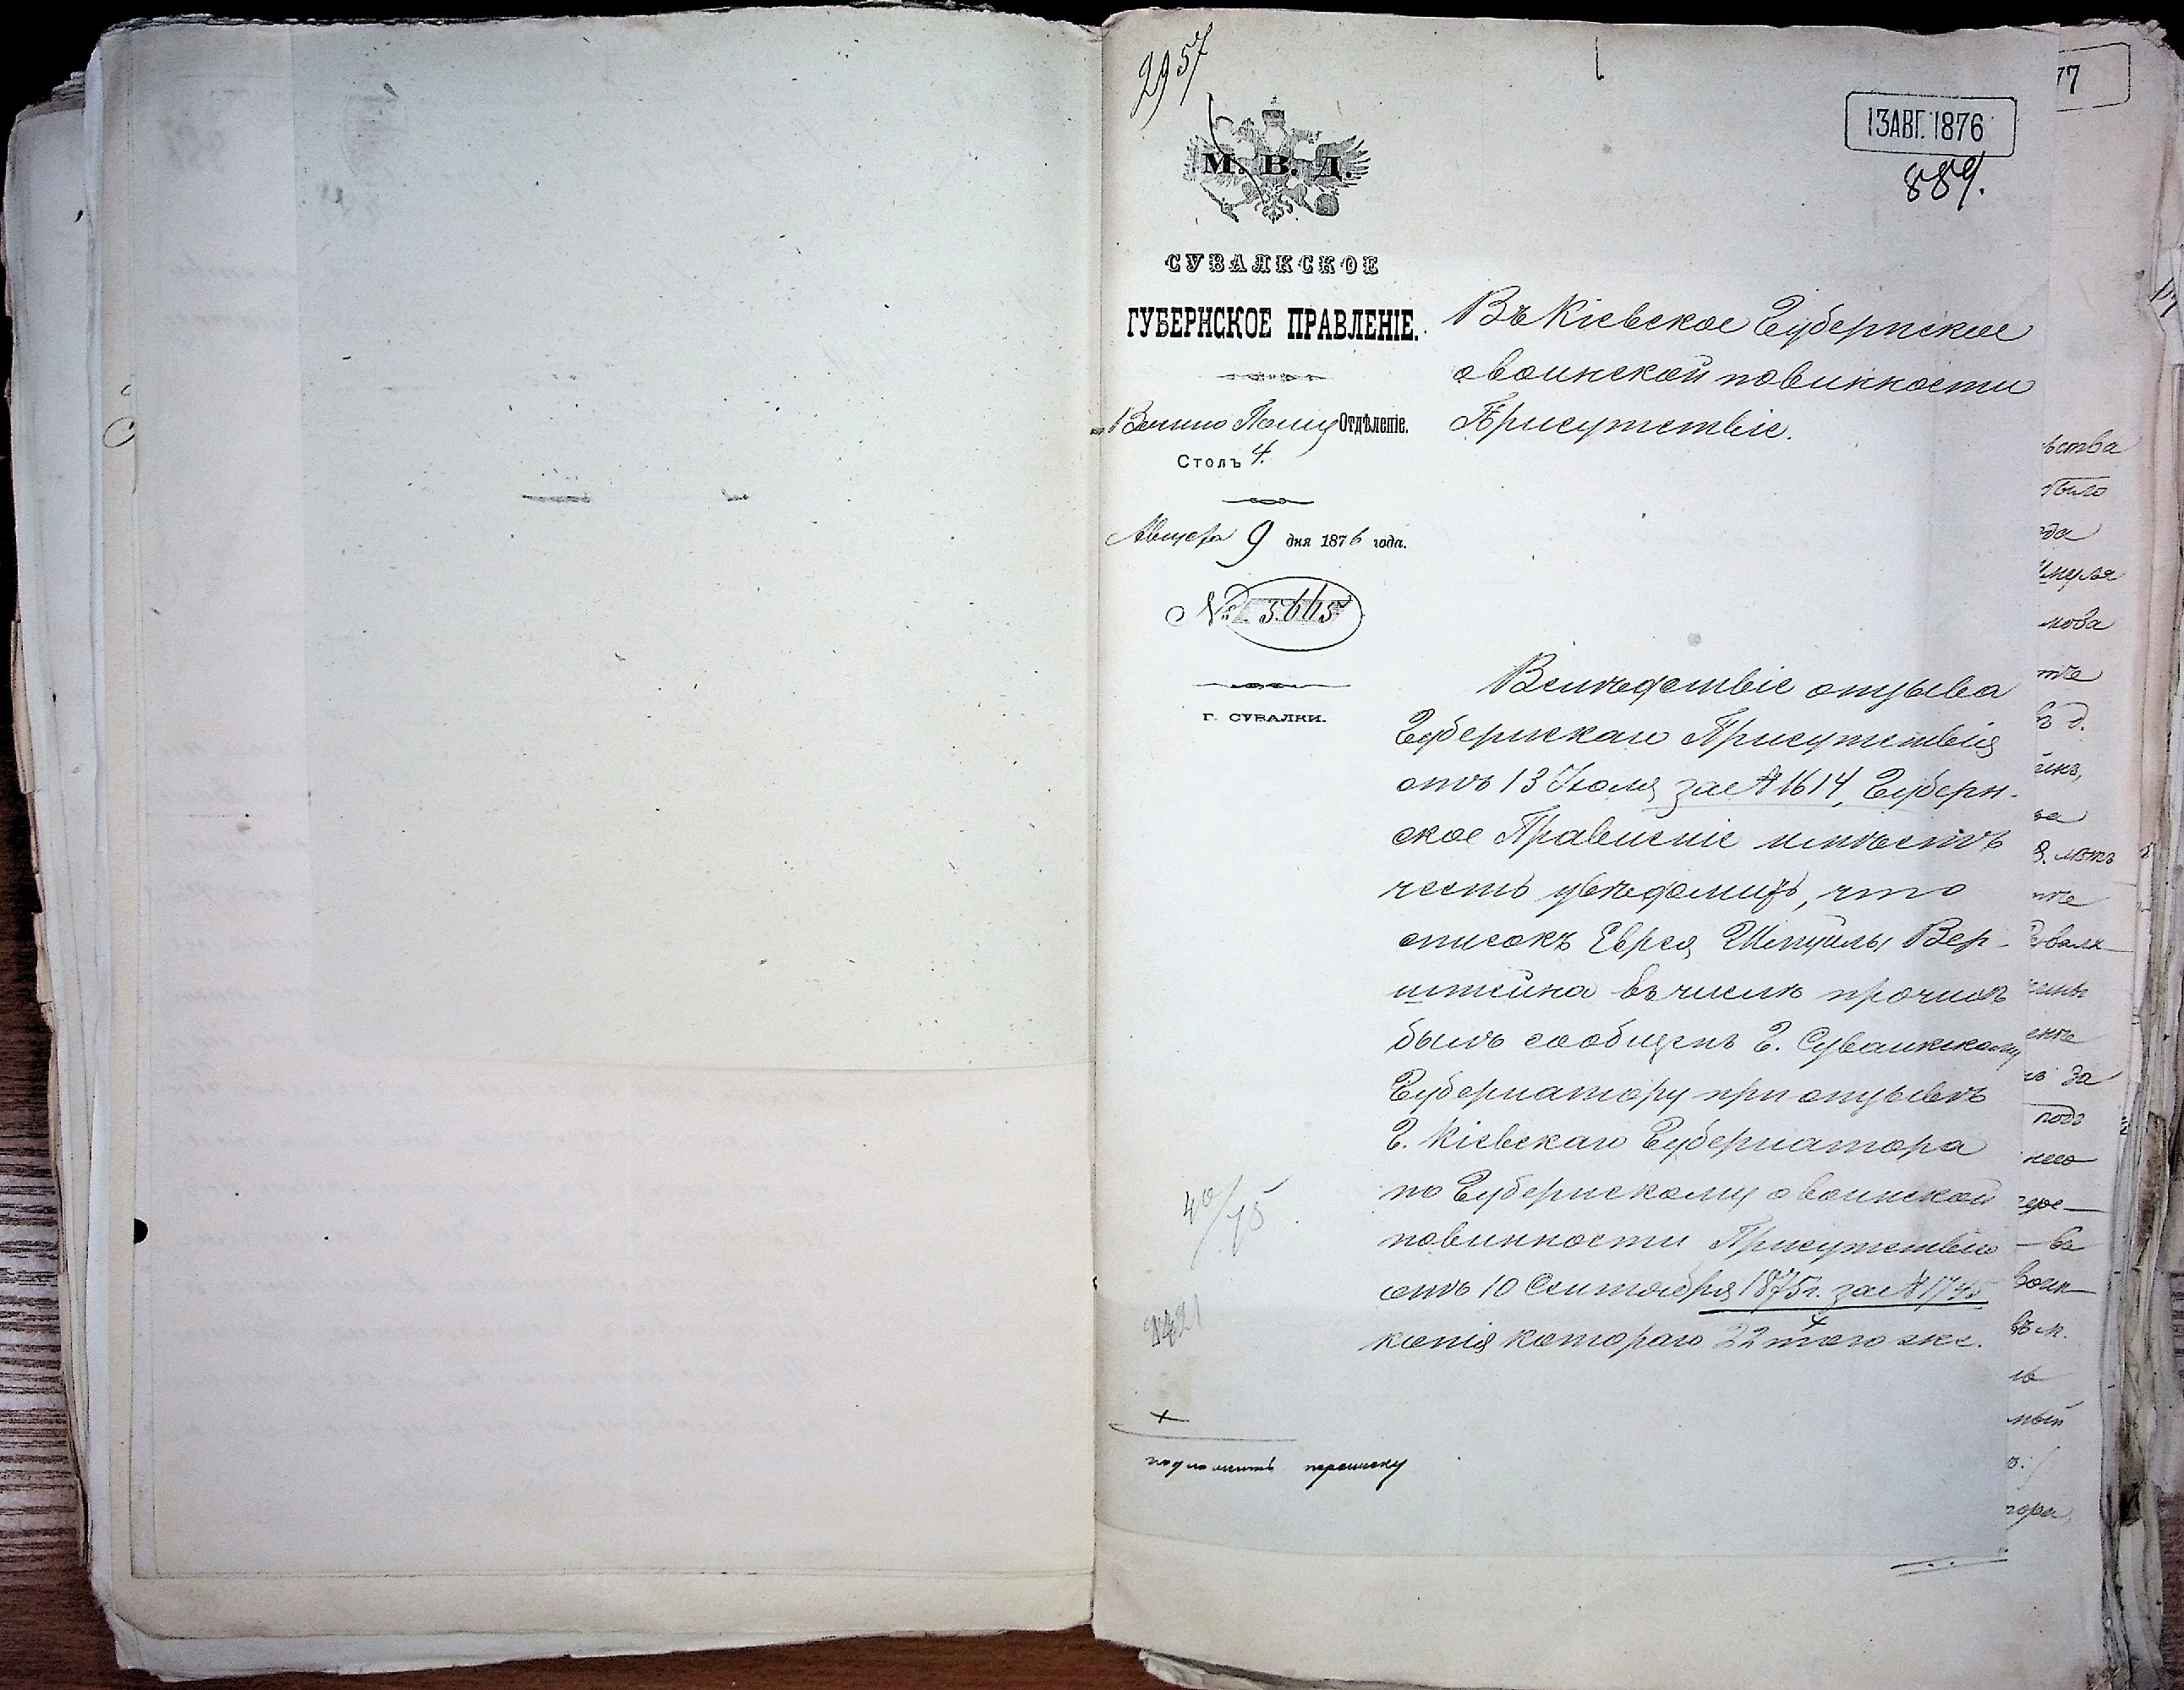 2957
77
13 АВГ. 1876
889.
М. В. Д.
СУВАЛКСКОЕ
ГУБЕРНСКОЕ ПРАВЛЕНІЕ.
Военно Полиц Отдѣленіе.
Столъ 4.
Августа 9 дня 1876 года.
№ 3665
г. СУВАЛКИ.
Въ Кіевское Губернское
о воинской повинности
Присутствіе.
Вслѣдствіе отзыва
Губернскаго Присутствія
отъ 13 Іюля за № 1614, Губерн-
ское Правленіе имѣетъ
честь увѣдомить, что
списокъ Еврея Шмуйлы Вер-
штейна въ числѣ прочихъ
былъ сообщенъ Г. Сувалкскому
Губернатору при отзывѣ
Г. Кіевскаго Губернатора
по Губернскому о воинской
повинности Присутствію
отъ 10 Сентября 1875 г. за №
копія котораго 22 того же.
40/75
подложить переписку
ьства
было
нова
въ д.
лѣтъ
за
подъ
воин
въ м.
тора,